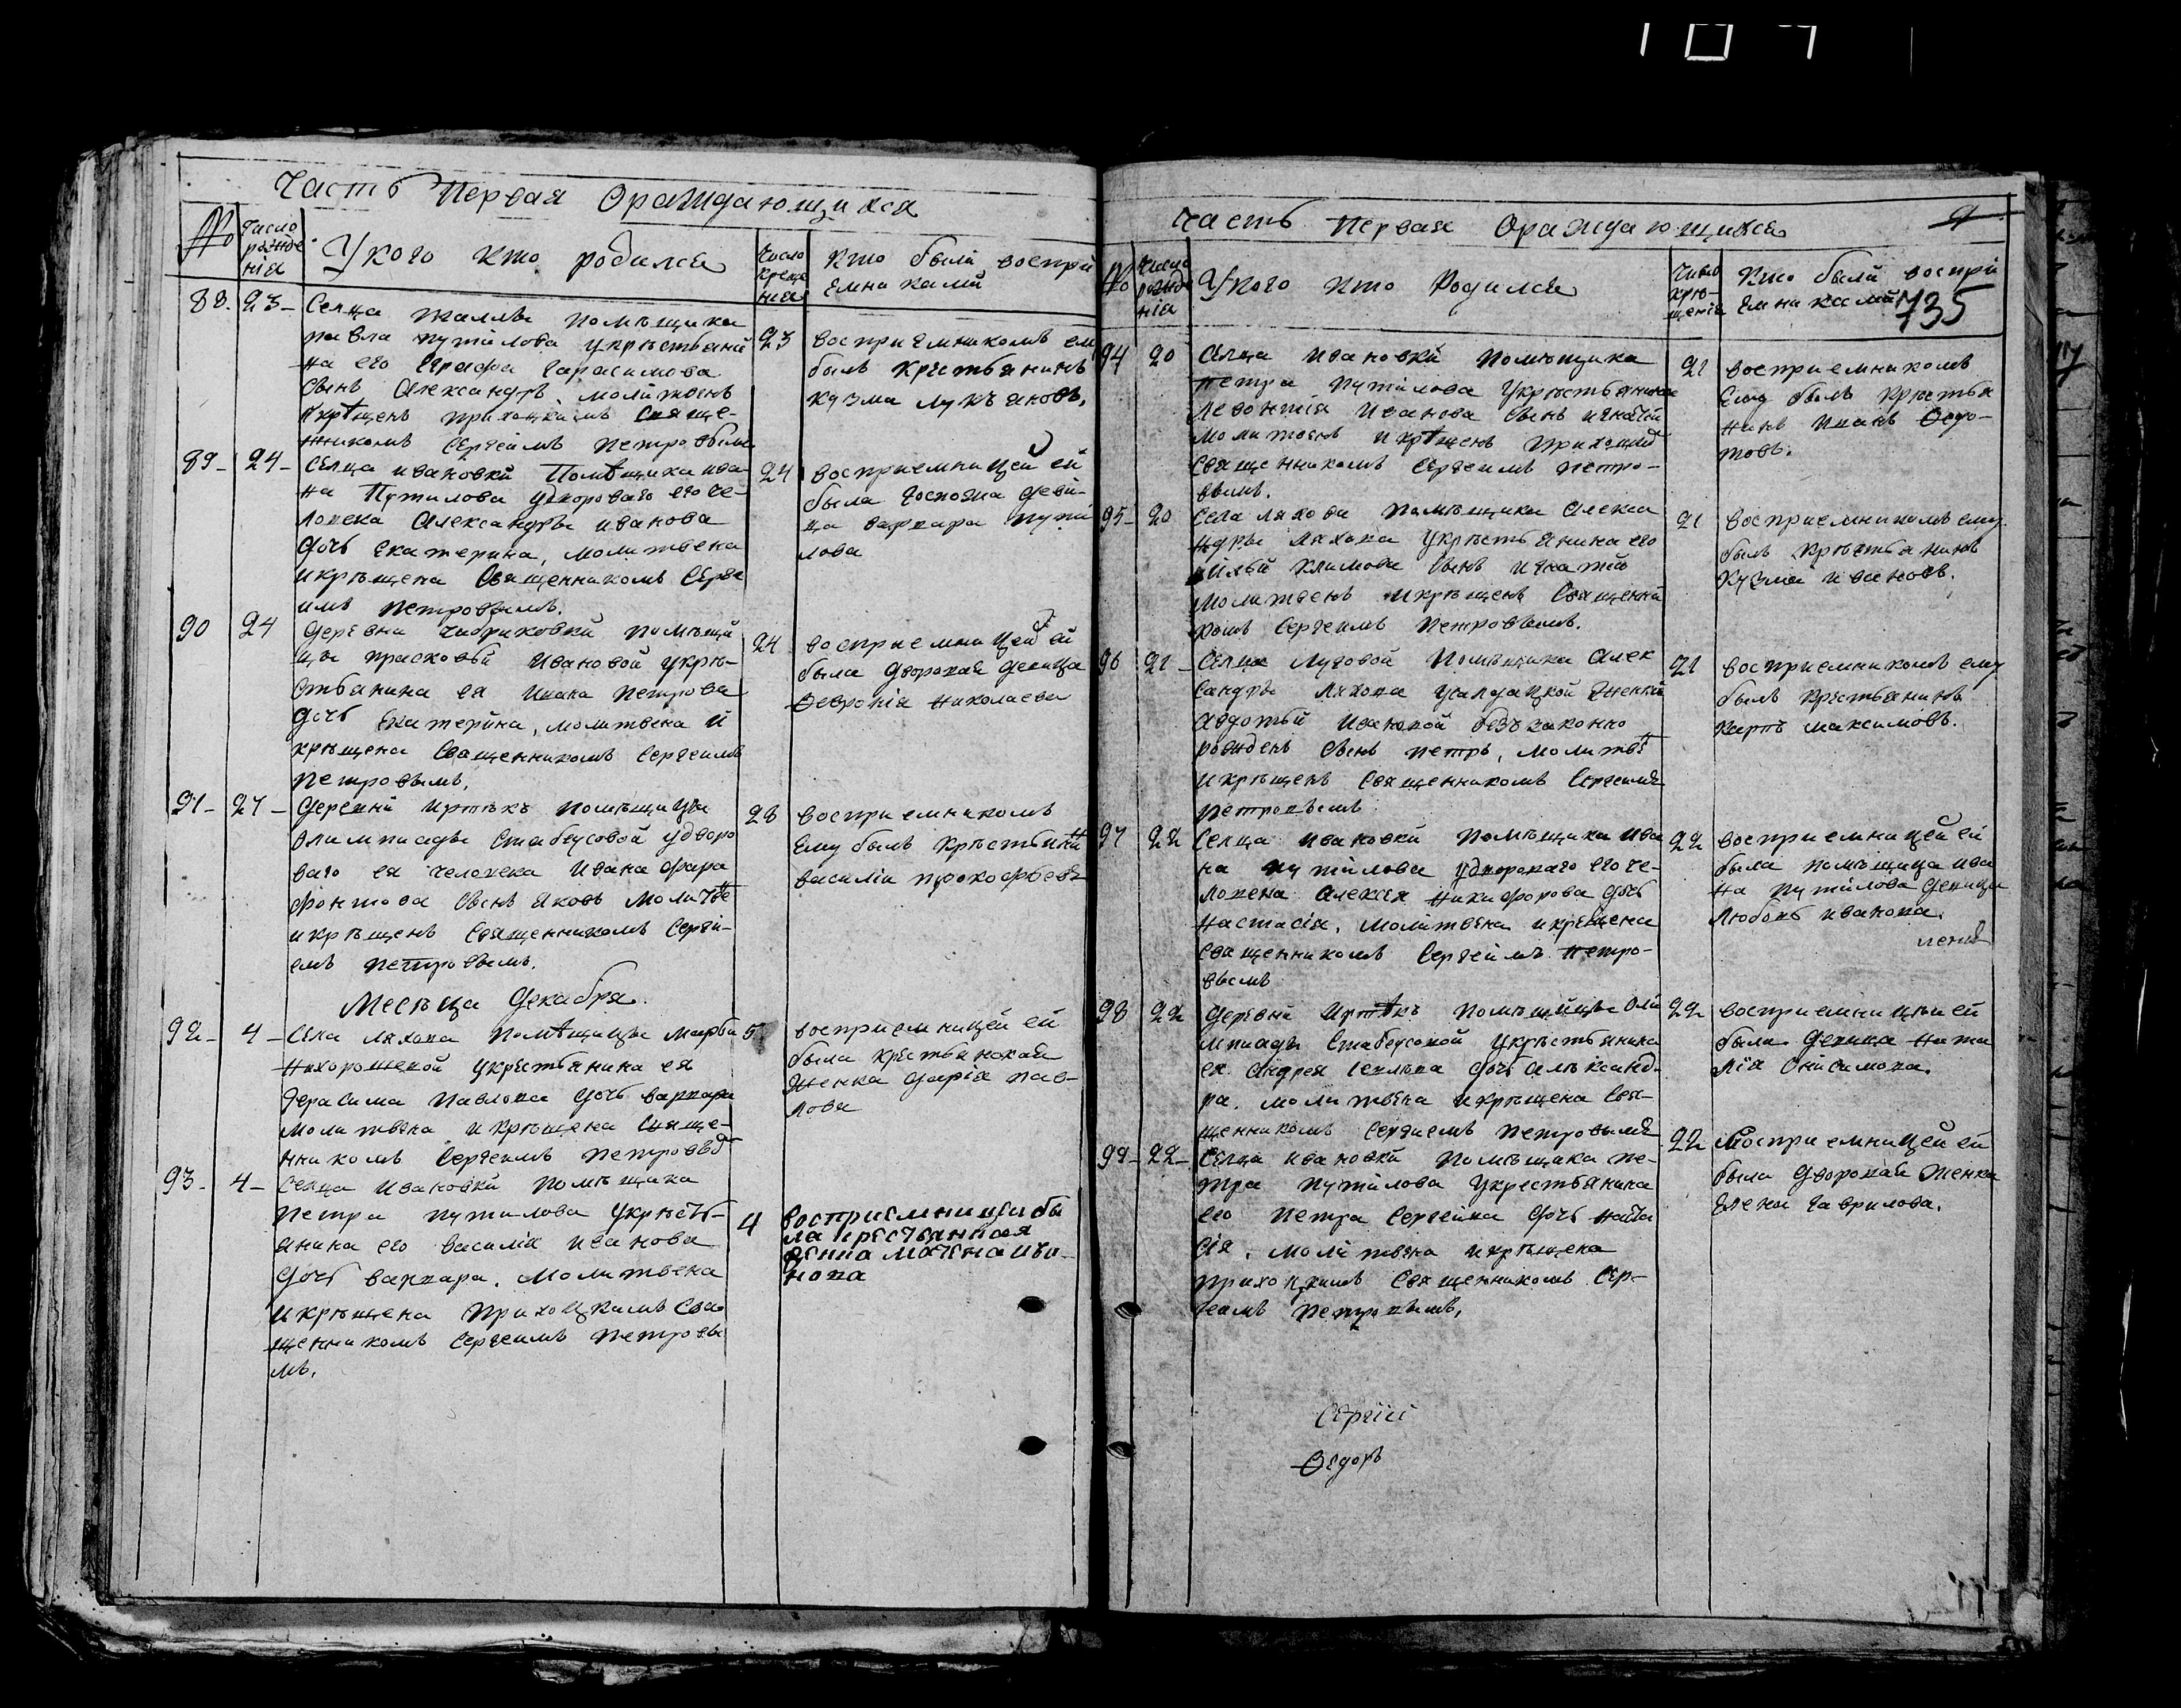 Часть Первая Ораждающихся
№
Число рожде нія
У кого кто родился
Число креще нія
Кто были воспрі емниками
88. 23 -
Селца
помѣщика
павла путилова укрѣстьяни
на его Герасимова
Сынъ Александръ, молитвенъ
икрѣщенъ приходскимъ Свяще-
нникомъ Сергеимъ Петровымъ
23
восприемникомъ ему
былъ Крѣстьянинъ
кузма лукъяновъ.
89 - 24 -
Селца ивановки Помѣщика ива
на Путилова удвороваго его че-
ловека Александры иванова
дочь екатерина, молитвена
икрѣщена Священникомъ Серге
имъ петровымъ.
24
восприемницей ей
была Госпожа деви-
ца варвара пути
лова
90 24
Деревни помѣщи
цы прасковьи ивановой укрѣ-
стьянина ея ивана петрова
дочь екатерина, молитвена и
крѣщена Священникомъ Сергеимъ
петровымъ.
24
восприемницей ей
была дворовая девица
Ѳеврония николаева
91 - 27 -
Деревни иртѣкъ помѣщицы
олимпиады Стабеусовой удворо
ваго ея человека ивана фара
фонтова Сынъ яковъ молитве
икрѣщенъ Священникомъ Серги-
емъ петровымъ.
28
восприемникомъ
Ему былъ крѣстьянинъ
василіи прокофьевъ
Месѣца Декабря.
92 - 4 -
Села ляхова помѣщицы марьи
Нехорошевой укрѣстьянина ея
герасима павлова дочь варвара
молитвена икрѣщена Свяще-
нникомъ Сергеимъ петров
5
восприемницей ей
была крѣстьянская
женка дарія пав-
лова
93 - 4 -
Селца ивановки помѣщика
петра путилова укрѣсть-
янина его василія иванова
дочь варвара. молитвена
икрѣщена приходскимъ Свя-
щенникомъ Сергеимъ петровы
мъ.
4
восприемницеи бы
ла крестьянская
женка матена ива-
нова
Часть Первая Ораждающихся
9
№
Число рожде нія
У кого кто Родился
Число крѣ- щенія
Кто были воспрі емниками
735
94 20
Селца ивановки помѣщика
петра путилова укрѣстьянина
левонтія иванова Сынъ игнатій
молитвенъ икрѣщенъ приходск
Священникомъ Сергеимъ петро-
вымъ.
21
восприемникомъ
Ему былъ крѣстья
нинъ иванъ Ѳедо-
товъ.
95 - 20
Села ляхова помѣщика Алекса
ндры ляхова укрѣстьянина его
климова Сынъ игнатій
молитвенъ икрѣщенъ Священни
комъ Сергеимъ петровымъ.
21
восприемникомъ ему
былъ крѣстьянинъ
кузма ивановъ.
96 21 -
Селца Луговой помѣщика Алек
сандры ляхова усалдацкой женки
авдотьи ивановой беззаконно
рожденъ Сынъ петръ, молитве
икрѣщенъ Священникомъ Сергеимъ
петровымъ
21
восприемникомъ ему
былъ крѣстьянинъ
карпъ максимовъ.
97 22
Селца ивановки помѣщика ива
на путилова удвороваго его че-
ловека алексея никифорова дочь
настасія. молитвена икрещена
священникомъ Сергеимъ петро-
вымъ
22
восприемницей ей
была помѣщица ива
на путилова девица
любовь иванова.
98 22
Деревни иртѣкъ помѣщицы Оли
мпиады Стабеусовой укрѣстьянина
ея андрея дочь Александ-
ра. молитвена икрѣщена Свя-
щенникомъ Сергіемъ петровымъ
22
восприемницеи ей
была девица ната
лія Онисимова.
99 - 22 -
Селца ивановки помѣщика пе-
тра путилова укрестьянина
его петра Сергеива дочь наста
сія. молитвена икрѣщена
приходскимъ Священникомъ Сер-
геимъ петровымъ,
22
Восприемницей ей
была дворовая женка
Елена гаврилова.
Сергіи
Ѳедоръ